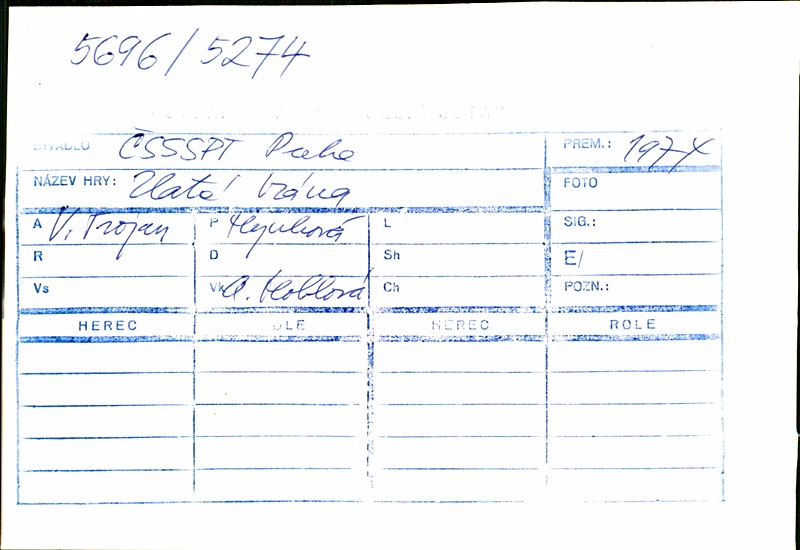 5696/5274
DIVADLO ČSSSPT Praha PREM.: 1974
NÁZEV HRY: Zlatá brána FOTO
A V. Trojan P L SIG.:
R D Sh E/
Vs Vk A. Koblová Ch POZN.:
HEREC ROLE HEREC ROLE